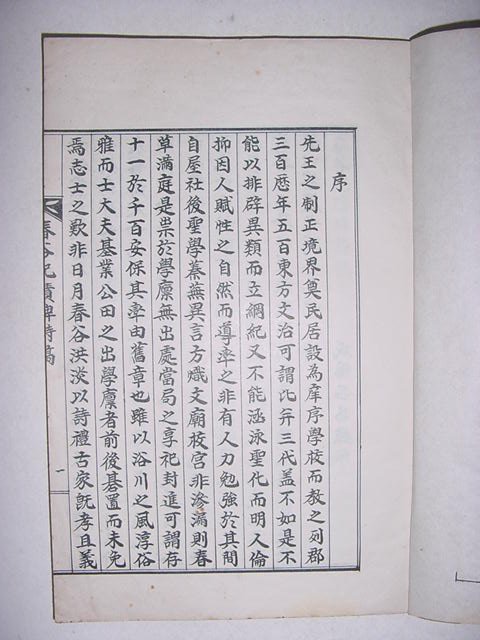 序
先王之制正境界奠民居設為庠序學校而教之列郡
三百曆年五百東方文治可謂比並三代盖不如是不
能以排辟異類而立綱紀又不能涵泳聖化而明人倫
抑因人賦性之自然而導率之非有人力勉強於其間
自屋社後聖學蓁蕪異言方熾文廟校宮非滲漏則春
草滿庭是祟於學廩無出處當局之享祀封進可謂存
十一於千百安保其率由舊章也雖以浴川之風淳俗
雅而士大夫基業公田之出學廩者前後碁置而未免
焉志士之歎非日月春谷洪淡以詩禮古家旣孝且義
春谷紀蹟碑詩高
一